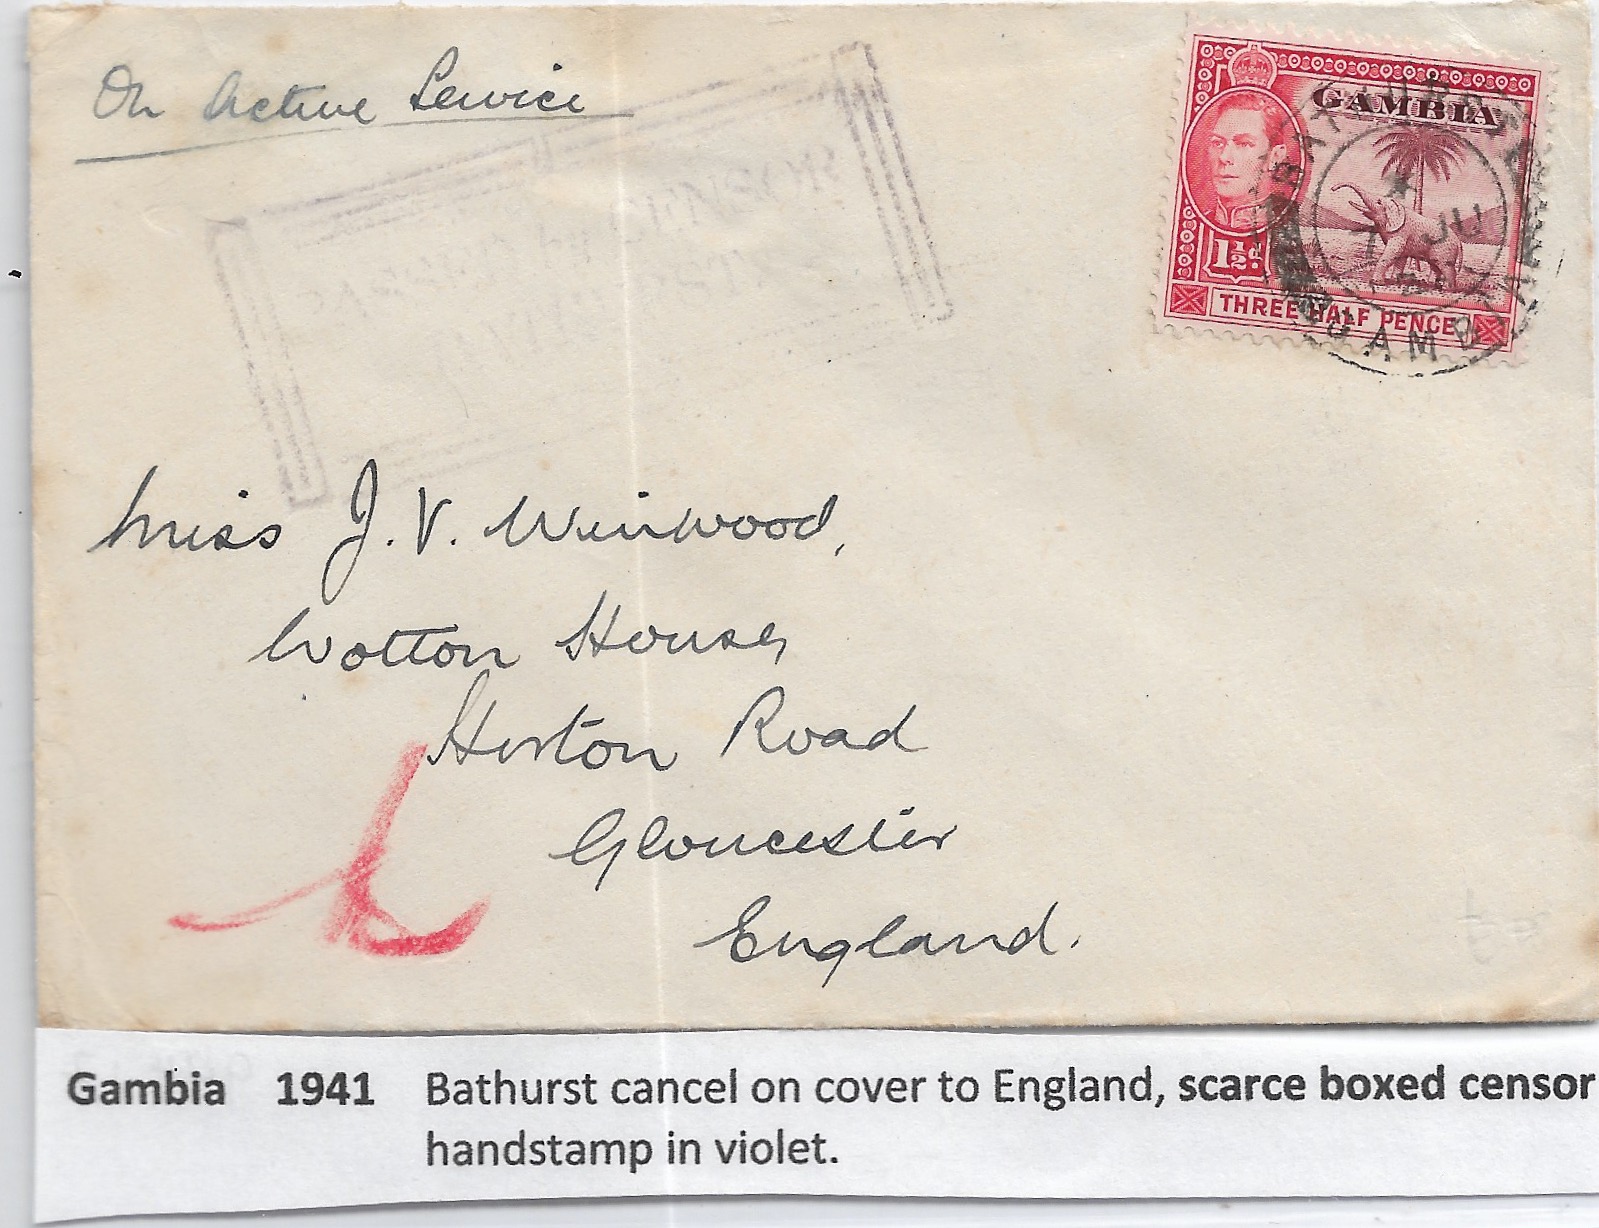 On Active Service
GAMBIA
1½d.
THREE HALF PENCE
BATHURST
7 JU
GAMBIA
Miss J. V. Winwood,
Wotton House,
Horton Road
Gloucester
England.
Gambia 1941 Bathurst cancel on cover to England, scarce boxed censor
handstamp in violet.